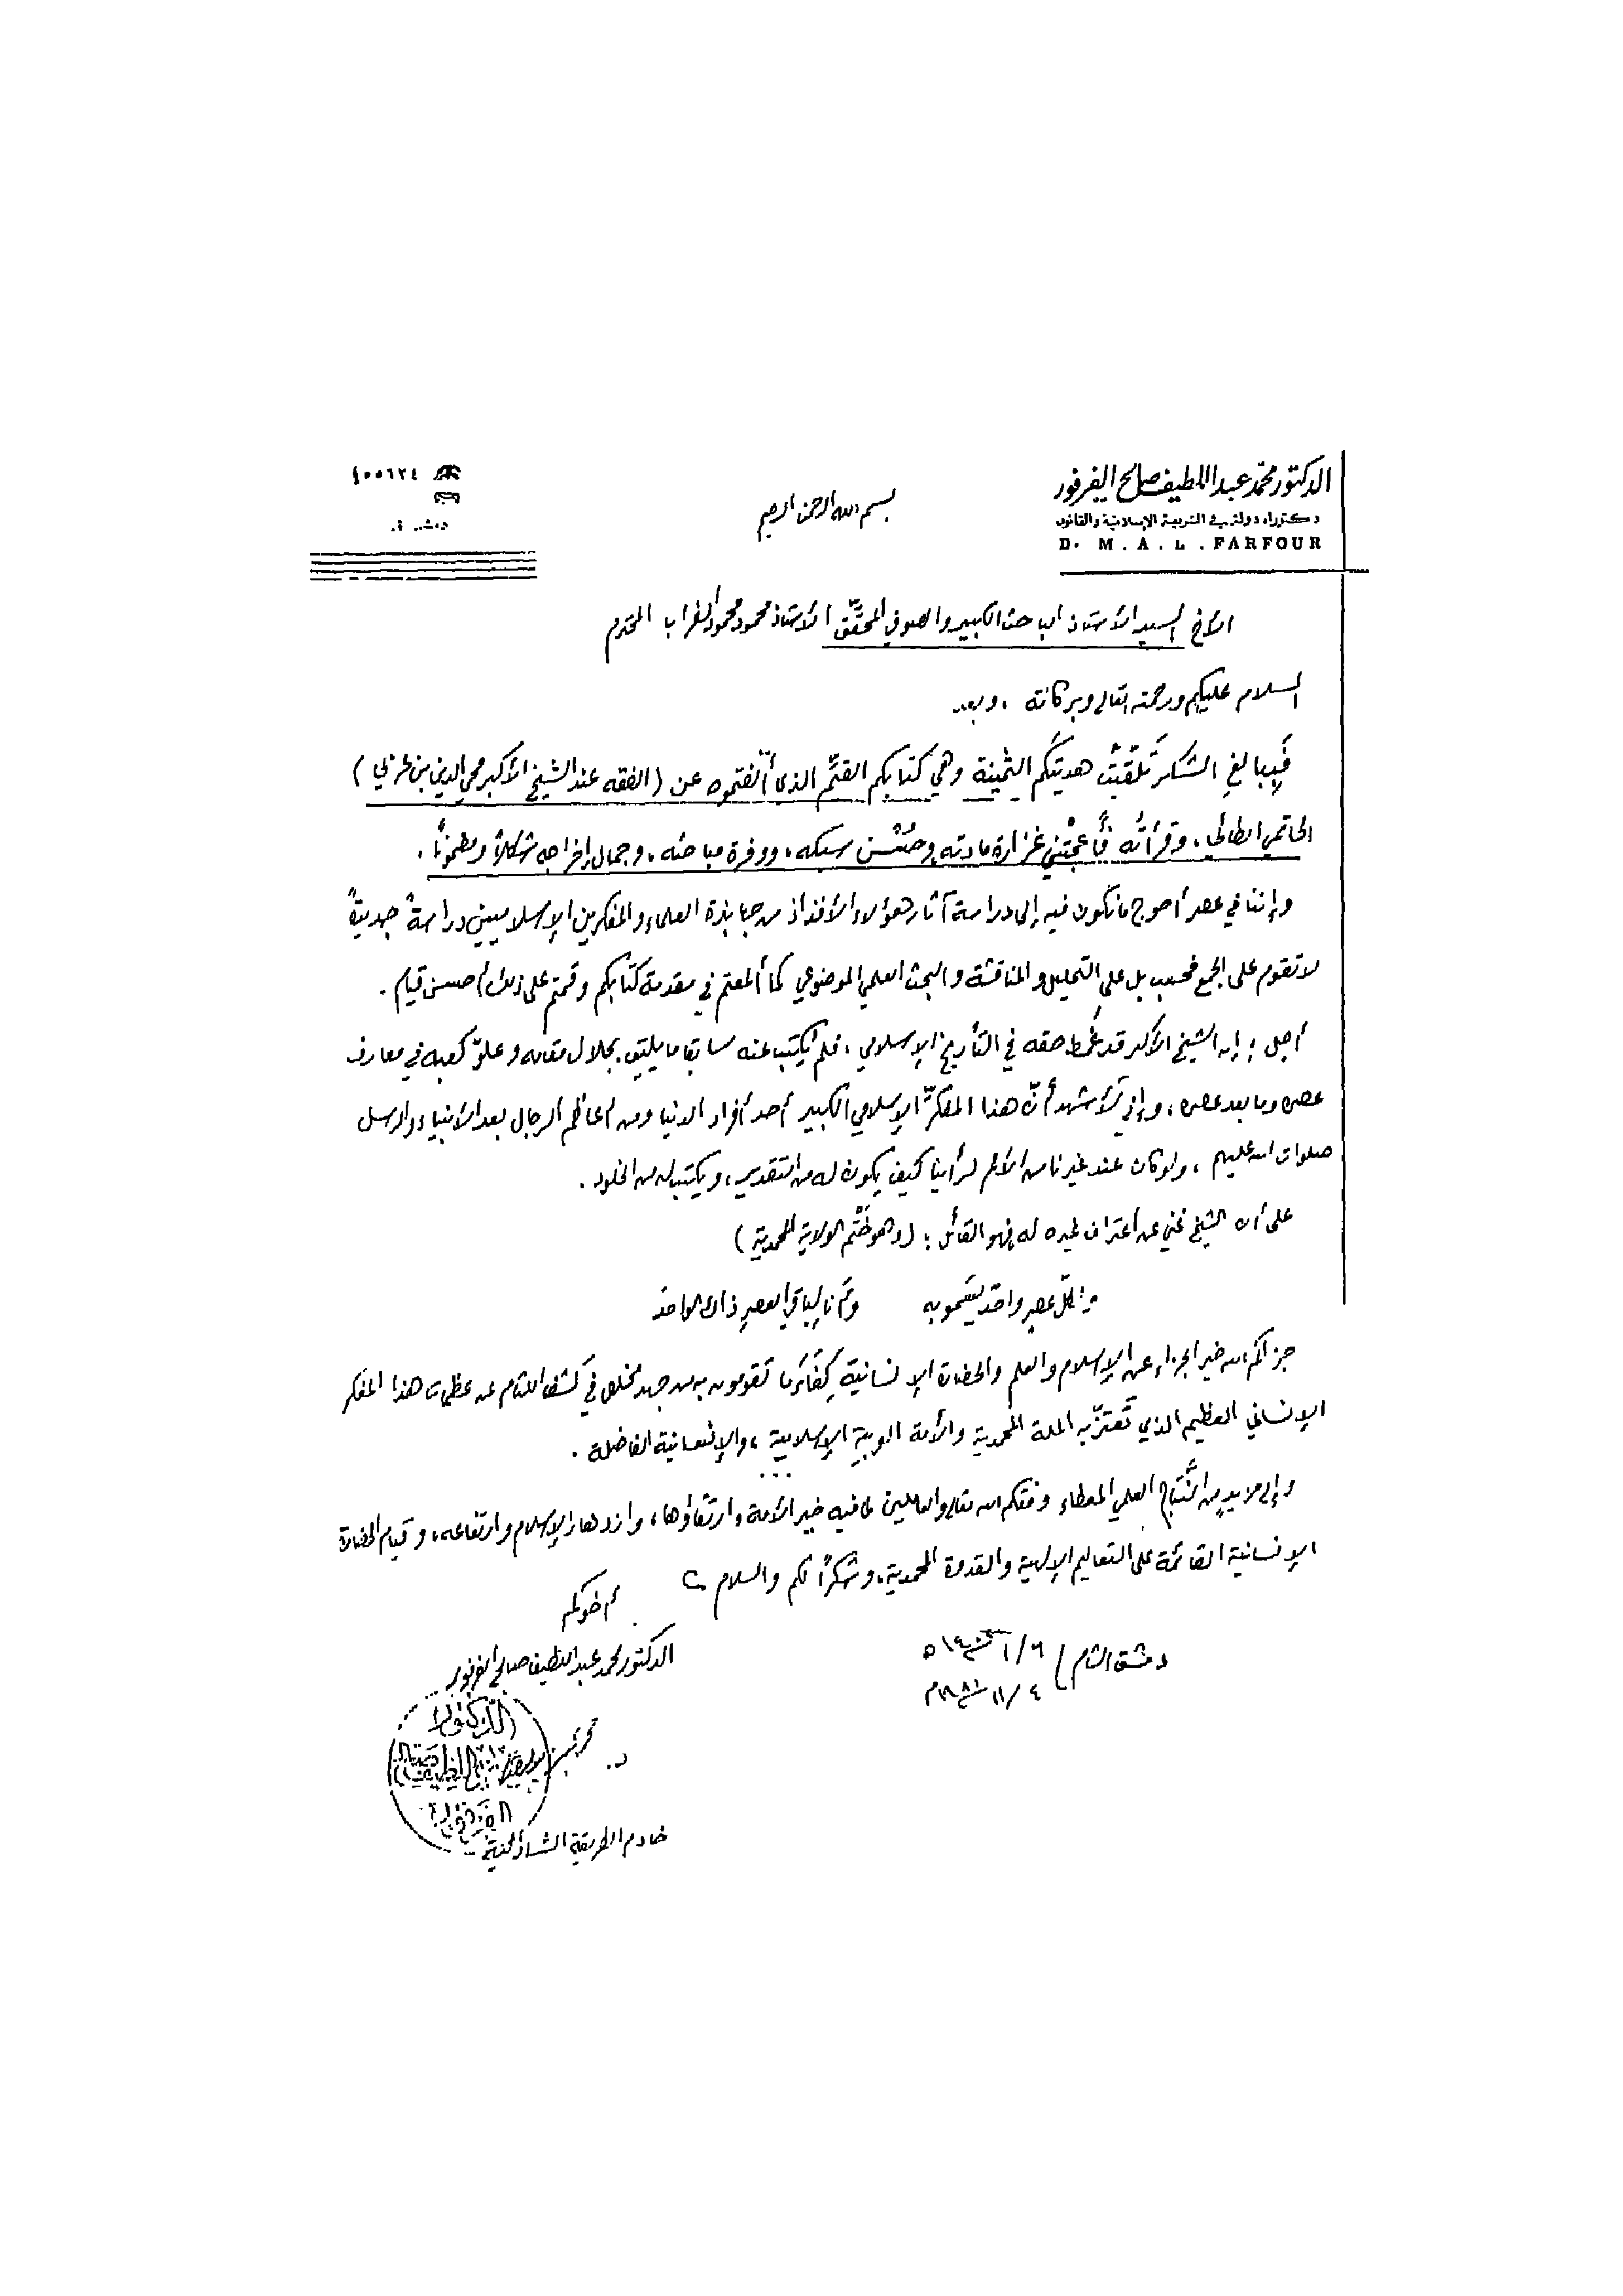 الدكتور محمد عبد اللطيف صالح الفرفور
دكتوراه دولة في الشريعة الإسلامية والقانون
D. M. A. L. FARFOUR
٤٥٥٦٢٤
دمشق
بسم الله الرحمن الرحيم
الأخ السيد الأستاذ الباحث الكبير والصوفي المحقّق الأستاذ محمود محمود الغراب المحترم
السلام عليكم ورحمته تعالى وبركاته ، وبعد
فَبِبالغِ الشكر تلقّيتُ هديتكم الثمينة وهي كتابكم القيّم الذي ألّفتموه عن (الفقه عند الشيخ الأكبر محي الدين بن عربي)
الحاتمي الطائي، وقرأتُه فأعجبتني غزارة مادته وحُسْن سبكه، ووفرة مباحثه، وجمال إخراجه شكلاً ومضموناً.
وإننا في عصر أحوج ما نكون فيه إلى دراسة آثار هؤلاء الأفذاذ من جهابذة العلماء والمفكرين الإسلاميين دراسةً جديةً
لا تقوم على الجمع فحسب بل على التحليل والمناقشة والبحث العلمي الموضوعي كما ألمعتم في مقدمة كتابكم وقمتم على ذلك أحسن قيام .
أجل ؛ إن الشيخ الأكبر قد غُمط حقه في التأريخ الإسلامي، فلم يُكتب عنه سابقا ما يليق بجلال مقامه وعلوّ كعبه في معارف
عصره وما بعد عصره، وإني لأشهد أنّ هذا المفكرّ الإسلامي الكبير أحد أفراد الدنيا ومن أعاظم الرجال بعد الأنبياء والرسل
صلوات الله عليهم ، ولو كان عند غيرنا من الأمم لرأينا كيف يكون له من التقدير، ويكتب له من الخلود .
على أن الشيخ غني عن اعتراف غيره له فهو القائل : (وهو خَتْم الولاية المحمدية)
ولكلّ عصرٍ واحدٌ يسمو به وأنا لباقي العصرِ ذاك الواحدُ
جزاكم الله خير الجزاء عن الإسلام والعلم والحضارة الإنسانية كِفَاءَ ما تقومون به من جهد مخلص في كشف اللثام عن عظمات هذا المفكر
الإنساني العظيم الذي تعتزّ به الملة المحمدية والأمة العربية الإسلامية ، والإنسانية الفاضلة .
وإلى مزيدٍ من النِّتاج العلمي المعطاء وفقكم الله تعالى والعاملين لما فيه خير الأمة وارتقاؤها، وازدهار الإسلام وارتفاعه، وقيام الحضارة
الإنسانية القائمة على التعاليم الإلهية والقدوة المحمدية، وشكراً لكم والسلام
أخوكم
الدكتور محمد عبد اللطيف صالح الفرفور
دمشق الشام
٤ / ١١ / ١٩٨١م
خادم الطريقة الشاذلية